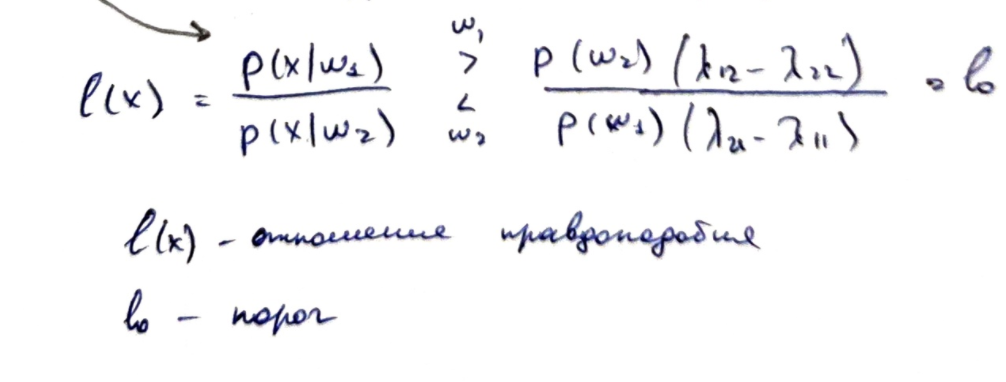 l(x) = p(x|ω₁) / p(x|ω₂) ω₁ > < ω₂ p(ω₂) (λ₁₂ - λ₂₂) / p(ω₁) (λ₂₁ - λ₁₁) = l₀
l(x) - отношение правдоподобия
l₀ - порог